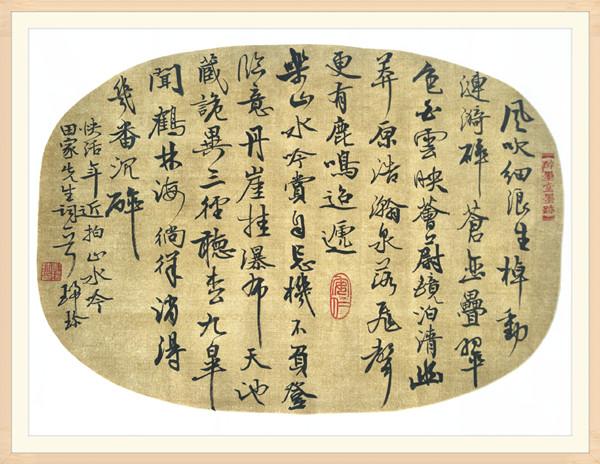 風吹細浪生棹動
漣漪碎蒼巒疊翠
色白雲映薈蔚繞泊清幽
莽原浩瀚泉落飛聲
更有鹿鳴迢遞
樂山水吟賞自忘機不負登
臨意丹崖挂瀑布天池
藏詭異三徑聽松九皋
聞鶴林海徜徉消得
幾番沉醉
快活年近拍山水吟
田家先生詞